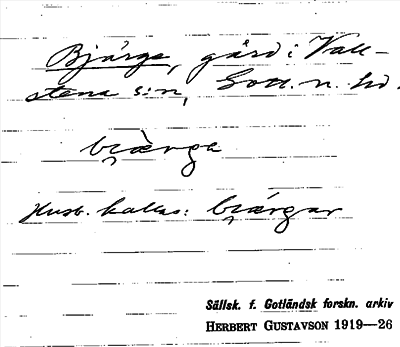 Bjärge, gård i Vall-
stena s:n, Gotl. n. hd.
bi̯ärgä
Husb. kallas: bi̯ärgar
Sällsk. f. Gotländsk forskn. arkiv
HERBERT GUSTAVSON 1919—26